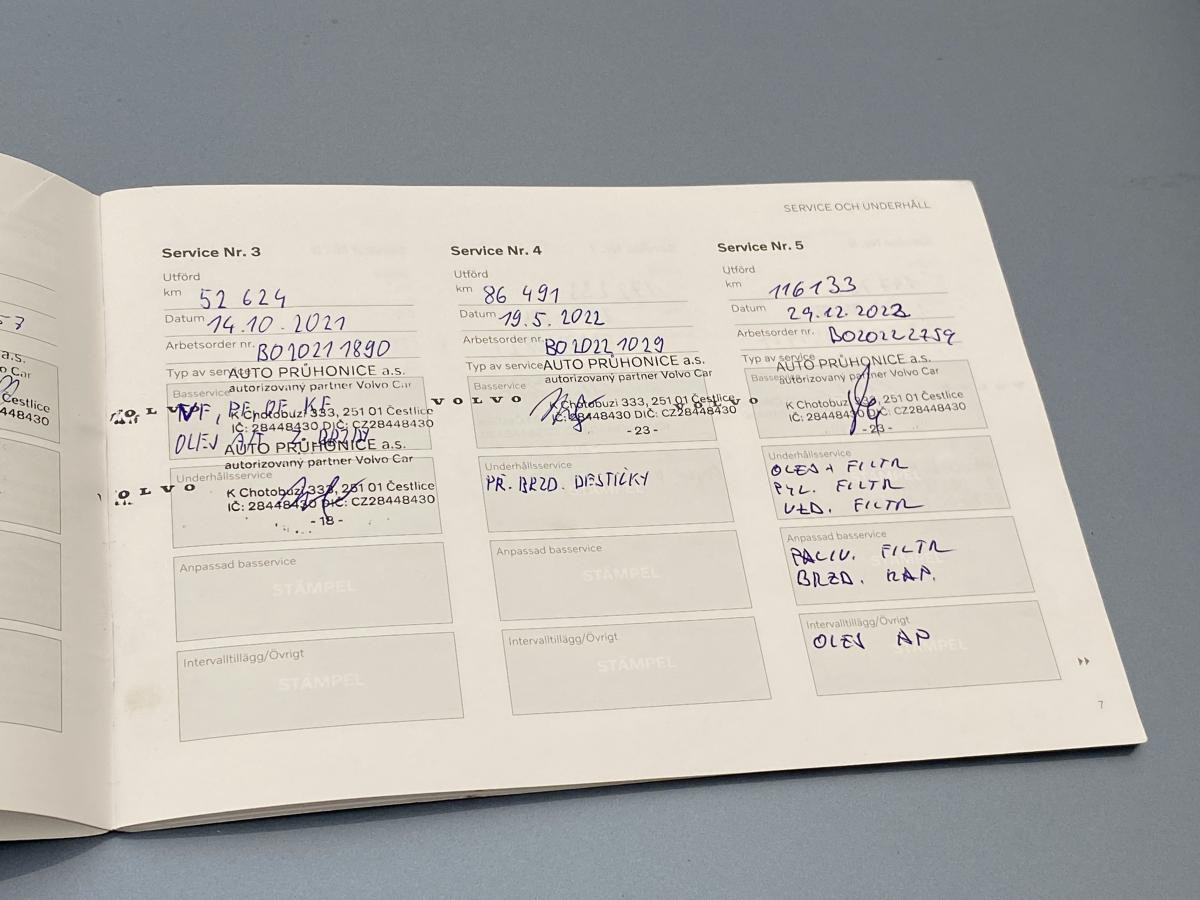 SERVICE OCH UNDERHÅLL
Service Nr. 3
Utförd
km 52 624
Datum 14.10.2021
Arbetsorder nr. BO20211890
Typ av service
AUTO PRŮHONICE a.s.
autorizovaný partner Volvo Car
Basservice
VOLVO
K Chotobuzi 333, 251 01 Čestlice
IČ: 28448430 DIČ: CZ28448430
OLEJ
AUTO PRŮHONICE a.s.
autorizovaný partner Volvo Car
Underhållsservice
VOLVO
K Chotobuzi 333, 251 01 Čestlice
IČ: 28448430 DIČ: CZ28448430
- 18 -
Anpassad basservice
STÄMPEL
Intervalltillägg/Övrigt
STÄMPEL
Service Nr. 4
Utförd
km 86 491
Datum 19.5.2022
Arbetsorder nr. BO20221029
Typ av service
AUTO PRŮHONICE a.s.
autorizovaný partner Volvo Car
Basservice
VOLVO
K Chotobuzi 333, 251 01 Čestlice
IČ: 28448430 DIČ: CZ28448430
- 23 -
Underhållsservice
PŘ. BRZD. DESTIČKY
Anpassad basservice
STÄMPEL
Intervalltillägg/Övrigt
STÄMPEL
Service Nr. 5
Utförd
km 116133
Datum 29.12.2022
Arbetsorder nr. BO20222759
Typ av service
AUTO PRŮHONICE a.s.
autorizovaný partner Volvo Car
Basservice
VOLVO
K Chotobuzi 333, 251 01 Čestlice
IČ: 28448430 DIČ: CZ28448430
- 23 -
Underhållsservice
OLEJ + FILTR
PYL. FILTR
VZD. FILTR
Anpassad basservice
PALIV. FILTR
BRZD. KAP.
Intervalltillägg/Övrigt
OLEJ AP
STÄMPEL
7
a.s.
o Car
Čestlice
448430